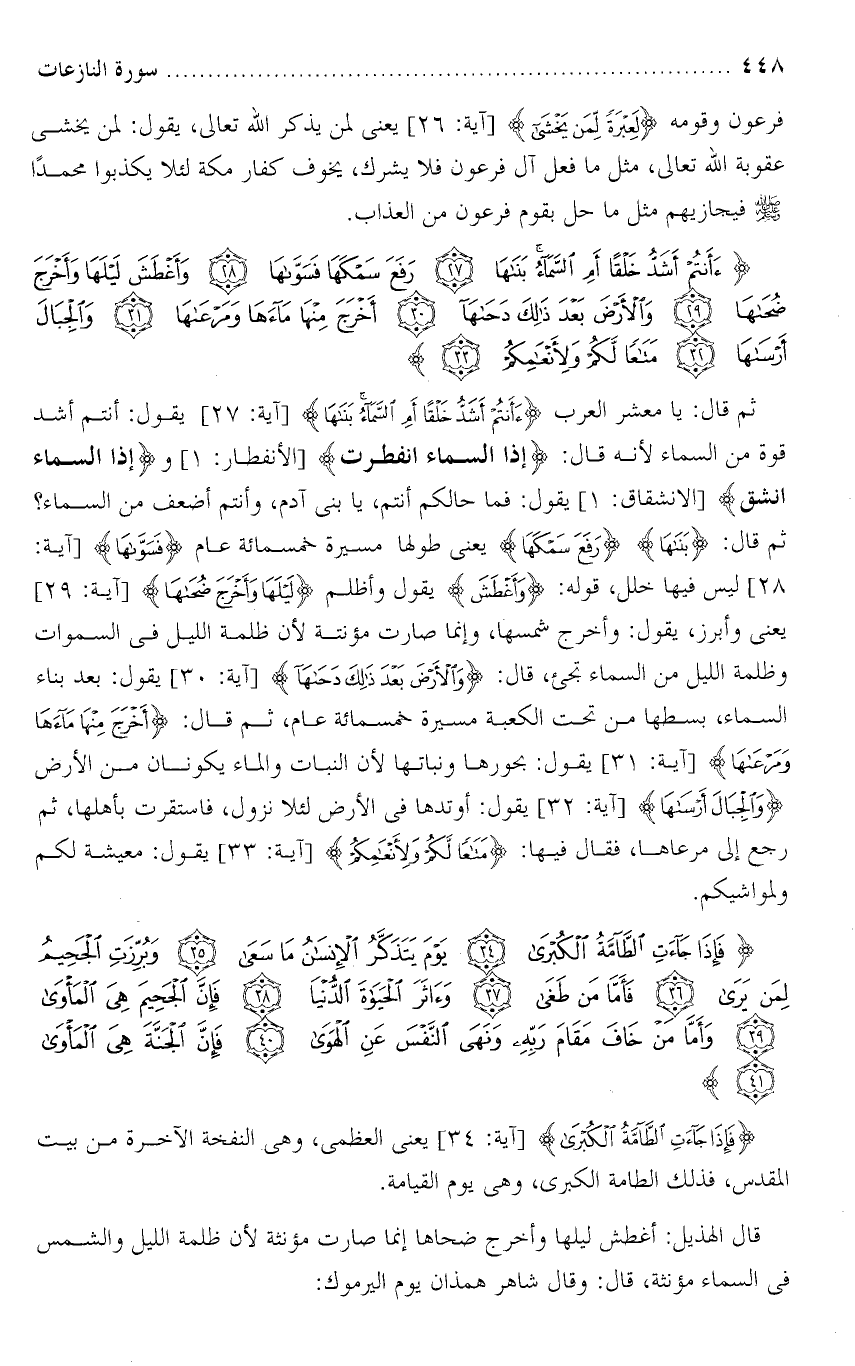 ٤٤٨ ............................................................ سورة النازعات
فرعون وقومه ﴿لَعِبْرَةً لِّمَن يَخْشَىٰٓ﴾ [آية: ٢٦] يعنى لمن يذكر الله تعالى، يقول: لمن يخشى
عقوبة الله تعالى، مثل ما فعل آل فرعون فلا يشرك، يخوف كفار مكة لئلا يكذبوا محمدًا
ﷺ فيجازيهم مثل ما حل بقوم فرعون من العذاب.
﴿ ءَأَنتُمْ أَشَدُّ خَلْقًا أَمِ ٱلسَّمَآءُ ۚ بَنَىٰهَا ٢٧ رَفَعَ سَمْكَهَا فَسَوَّىٰهَا ٢٨ وَأَغْطَشَ لَيْلَهَا وَأَخْرَجَ
ضُحَىٰهَا ٢٩ وَٱلْأَرْضَ بَعْدَ ذَٰلِكَ دَحَىٰهَآ ٣٠ أَخْرَجَ مِنْهَا مَآءَهَا وَمَرْعَىٰهَا ٣١ وَٱلْجِبَالَ
أَرْسَىٰهَا ٣٢ مَتَٰعًا لَّكُمْ وَلِأَنْعَٰمِكُمْ ٣٣ ﴾
ثم قال: يا معشر العرب ﴿ءَأَنتُمْ أَشَدُّ خَلْقًا أَمِ ٱلسَّمَآءُ ۚ بَنَىٰهَا﴾ [آية: ٢٧] يقول: أنتم أشد
قوة من السماء لأنه قال: ﴿إذا السماء انفطرت﴾ [الأنفطار: ١] و﴿إذا السماء
انشق﴾ [الانشقاق: ١] يقول: فما حالكم أنتم، يا بنى آدم، وأنتم أضعف من السماء؟
ثم قال: ﴿بَنَىٰهَا﴾ ﴿رَفَعَ سَمْكَهَا﴾ يعنى طولها مسيرة خمسمائة عام ﴿فَسَوَّىٰهَا﴾ [آية:
٢٨] ليس فيها خلل، قوله: ﴿وَأَغْطَشَ﴾ يقول وأظلم ﴿لَيْلَهَا وَأَخْرَجَ ضُحَىٰهَا﴾ [آية: ٢٩]
يعنى وأبرز، يقول: وأخرج شمسها، وإنما صارت مؤنتة لأن ظلمة الليل فى السموات
وظلمة الليل من السماء تجئ، قال: ﴿وَٱلْأَرْضَ بَعْدَ ذَٰلِكَ دَحَىٰهَآ﴾ [آية: ٣٠] يقول: بعد بناء
السماء، بسطها من تحت الكعبة مسيرة خمسمائة عام، ثم قال: ﴿أَخْرَجَ مِنْهَا مَآءَهَا
وَمَرْعَىٰهَا﴾ [آية: ٣١] يقول: بحورها ونباتها لأن النبات والماء يكونان من الأرض
﴿وَٱلْجِبَالَ أَرْسَىٰهَا﴾ [آية: ٣٢] يقول: أوتدها فى الأرض لئلا نزول، فاستقرت بأهلها، ثم
رجع إلى مرعاها، فقال فيها: ﴿مَتَٰعًا لَّكُمْ وَلِأَنْعَٰمِكُمْ﴾ [آية: ٣٣] يقول: معيشة لكم
ولمواشيكم.
﴿ فَإِذَا جَآءَتِ ٱلطَّآمَّةُ ٱلْكُبْرَىٰ ٣٤ يَوْمَ يَتَذَكَّرُ ٱلْإِنسَٰنُ مَا سَعَىٰ ٣٥ وَبُرِّزَتِ ٱلْجَحِيمُ
لِمَن يَرَىٰ ٣٦ فَأَمَّا مَن طَغَىٰ ٣٧ وَءَاثَرَ ٱلْحَيَوٰةَ ٱلدُّنْيَا ٣٨ فَإِنَّ ٱلْجَحِيمَ هِىَ ٱلْمَأْوَىٰ
٣٩ وَأَمَّا مَنْ خَافَ مَقَامَ رَبِّهِۦ وَنَهَى ٱلنَّفْسَ عَنِ ٱلْهَوَىٰ ٤٠ فَإِنَّ ٱلْجَنَّةَ هِىَ ٱلْمَأْوَىٰ
٤١ ﴾
﴿فَإِذَا جَآءَتِ ٱلطَّآمَّةُ ٱلْكُبْرَىٰ﴾ [آية: ٣٤] يعنى العظمى، وهى النفخة الآخرة من بيت
المقدس، فذلك الطامة الكبرى، وهى يوم القيامة.
قال الهذيل: أغطش ليلها وأخرج ضحاها إنما صارت مؤنثة لأن ظلمة الليل والشمس
فى السماء مؤنثة، قال: وقال شاهر همذان يوم اليرموك: